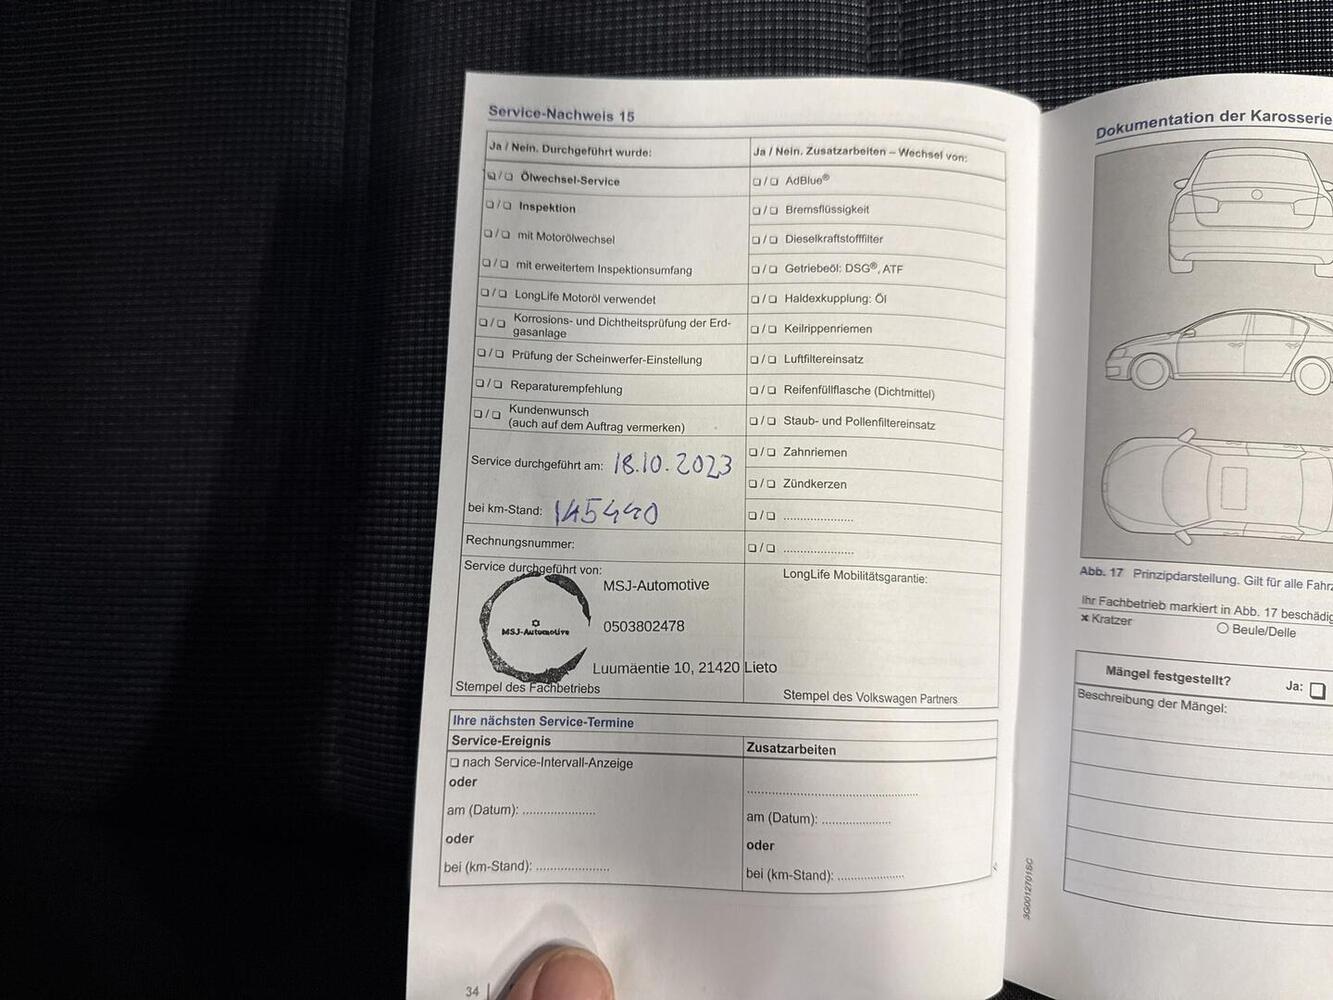 Service-Nachweis 15
Ja / Nein. Durchgeführt wurde:
❏ / ❏ Ölwechsel-Service
❏ / ❏ Inspektion
❏ / ❏ mit Motorölwechsel
❏ / ❏ mit erweitertem Inspektionsumfang
❏ / ❏ LongLife Motoröl verwendet
❏ / ❏ Korrosions- und Dichtheitsprüfung der Erd-
gasanlage
❏ / ❏ Prüfung der Scheinwerfer-Einstellung
❏ / ❏ Reparaturempfehlung
❏ / ❏ Kundenwunsch
(auch auf dem Auftrag vermerken)
Service durchgeführt am: 18.10.2023
bei km-Stand: 145440
Rechnungsnummer:
Service durchgeführt von:
MSJ-Automotive
MSJ-Automotive
0503802478
Luumäentie 10, 21420 Lieto
Stempel des Fachbetriebs
Ja / Nein. Zusatzarbeiten – Wechsel von:
❏ / ❏ AdBlue®
❏ / ❏ Bremsflüssigkeit
❏ / ❏ Dieselkraftstofffilter
❏ / ❏ Getriebeöl: DSG®, ATF
❏ / ❏ Haldexkupplung: Öl
❏ / ❏ Keilrippenriemen
❏ / ❏ Luftfiltereinsatz
❏ / ❏ Reifenfüllflasche (Dichtmittel)
❏ / ❏ Staub- und Pollenfiltereinsatz
❏ / ❏ Zahnriemen
❏ / ❏ Zündkerzen
❏ / ❏ .....................
❏ / ❏ .....................
LongLife Mobilitätsgarantie:
Stempel des Volkswagen Partners
Ihre nächsten Service-Termine
Service-Ereignis
❏ nach Service-Intervall-Anzeige
oder
am (Datum): .....................
oder
bei (km-Stand): .....................
Zusatzarbeiten
..................................................
am (Datum): .....................
oder
bei (km-Stand): .....................
34
Dokumentation der Karosserie
Abb. 17 Prinzipdarstellung. Gilt für alle Fahrz
Ihr Fachbetrieb markiert in Abb. 17 beschädig
x Kratzer
○ Beule/Delle
Mängel festgestellt?
Ja: ❏
Beschreibung der Mängel:
3G0012701SC